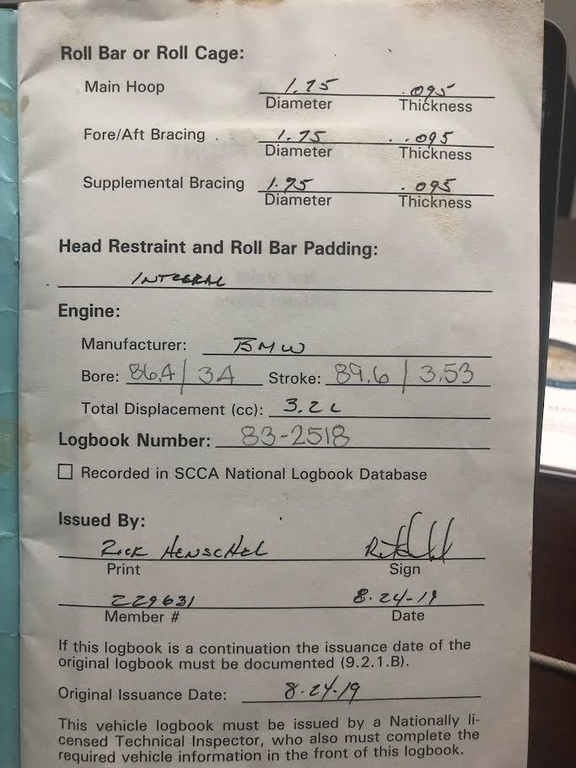 Roll Bar or Roll Cage:
Main Hoop 1.75 .095
Diameter Thickness
Fore/Aft Bracing 1.75 .095
Diameter Thickness
Supplemental Bracing 1.75 .095
Diameter Thickness
Head Restraint and Roll Bar Padding:
INTEGRAL
Engine:
Manufacturer: BMW
Bore: 86.4/3.4 Stroke: 89.6/3.53
Total Displacement (cc): 3.2L
Logbook Number: 83-2518
Recorded in SCCA National Logbook Database
Issued By:
RICK HENSCHEL
Print Sign
229631 8-24-19
Member # Date
If this logbook is a continuation the issuance date of the
original logbook must be documented (9.2.1.B).
Original Issuance Date: 8-24-19
This vehicle logbook must be issued by a Nationally li-
censed Technical Inspector, who also must complete the
required vehicle information in the front of this logbook.